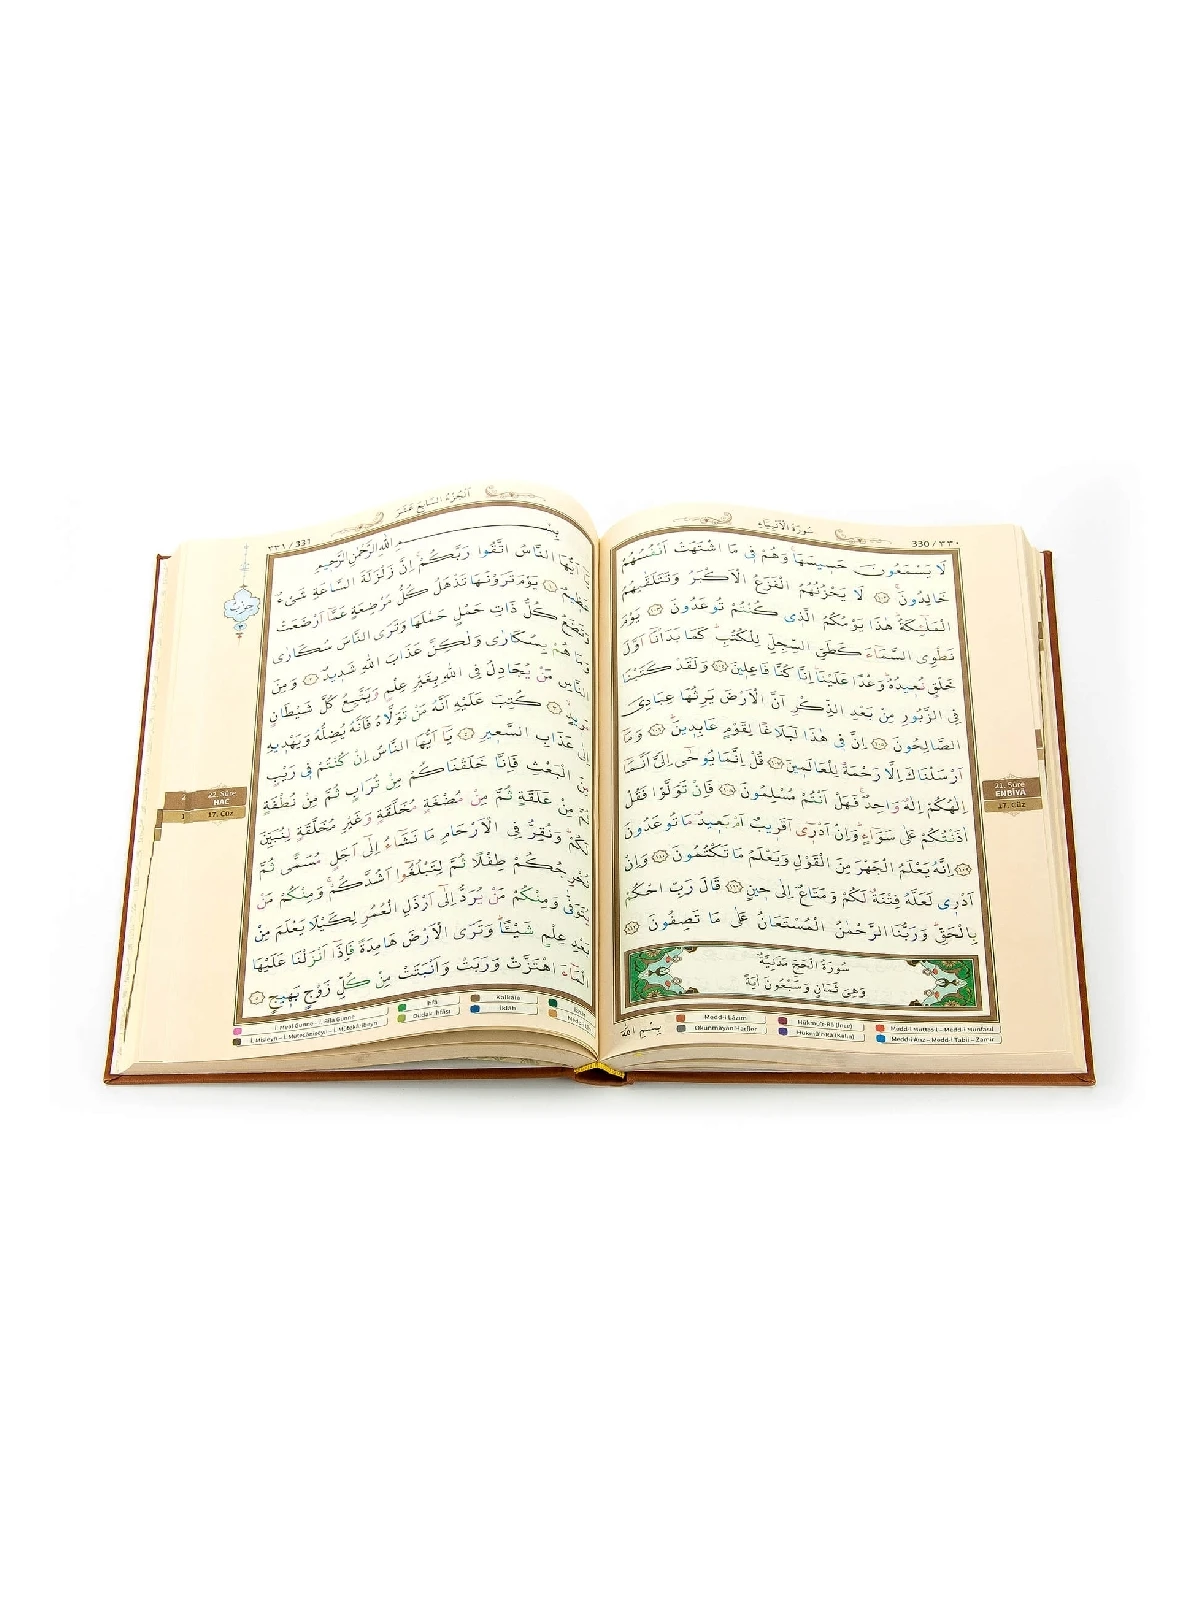 سُورَةُ الْاَنْبِيَاءِ
330 / ٣٣٠
لَا يَسْمَعُونَ حَسِيسَهَاۚ وَهُمْ فٖى مَا اشْتَهَتْ اَنْفُسُهُمْ
خَالِدُونَۚ ﴿١٠٢﴾ لَا يَحْزُنُهُمُ الْفَزَعُ الْاَكْبَرُ وَتَتَلَقّٰيهُمُ
الْمَلٰٓئِكَةُؕ هٰذَا يَوْمُكُمُ الَّذٖى كُنْتُمْ تُوعَدُونَ ﴿١٠٣﴾ يَوْمَ
نَطْوِى السَّمَٓاءَ كَطَىِّ السِّجِلِّ لِلْكُتُبِؕ كَمَا بَدَأْنَٓا اَوَّلَ
خَلْقٍ نُعٖيدُهُؕ وَعْدًا عَلَيْنَاؕ اِنَّا كُنَّا فَاعِلٖينَ ﴿١٠٤﴾ وَلَقَدْ كَتَبْنَا
فِى الزَّبُورِ مِنْ بَعْدِ الذِّكْرِ اَنَّ الْاَرْضَ يَرِثُهَا عِبَادِىَ
الصَّالِحُونَ ﴿١٠٥﴾ اِنَّ فٖى هٰذَا لَبَلَاغًا لِقَوْمٍ عَابِدٖينَؕ ﴿١٠٦﴾ وَمَٓا
اَرْسَلْنَاكَ اِلَّا رَحْمَةً لِلْعَالَمٖينَ ﴿١٠٧﴾ قُلْ اِنَّمَا يُوحٰٓى اِلَىَّ اَنَّمَٓا
اِلٰهُكُمْ اِلٰهٌ وَاحِدٌۚ فَهَلْ اَنْتُمْ مُسْلِمُونَ ﴿١٠٨﴾ فَاِنْ تَوَلَّوْا فَقُلْ
اٰذَنْتُكُمْ عَلٰى سَوَٓاءٍؕ وَاِنْ اَدْرٖٓى اَقَرٖيبٌ اَمْ بَعٖيدٌ مَا تُوعَدُونَ
﴿١٠٩﴾ اِنَّهُ يَعْلَمُ الْجَهْرَ مِنَ الْقَوْلِ وَيَعْلَمُ مَا تَكْتُمُونَ ﴿١١٠﴾ وَاِنْ
اَدْرٖى لَعَلَّهُ فِتْنَةٌ لَكُمْ وَمَتَاعٌ اِلٰى حٖينٍ ﴿١١١﴾ قَالَ رَبِّ احْكُمْ
بِالْحَقِّؕ وَرَبُّنَا الرَّحْمٰنُ الْمُسْتَعَانُ عَلٰى مَا تَصِفُونَ ﴿١١٢﴾
سُورَةُ الْحَجِّ مَدَنِيَّةٌ
وَهِىَ ثَمَانٍ وَسَبْعُونَ اٰيَةً
بِسْمِ اللّٰهِ
21. Sûre
ENBİYÂ
17. Cüz
Medd-i Lâzım
Okunmayan Harfler
Hükmü'r-Râ (İnce)
Hükmü'r-Râ (Kalın)
Medd-i Muttasıl – Medd-i Munfasıl
Medd-i Arız – Medd-i Tabii – Zamir
اَلْجُزْءُ السَّابِعَ عَشَرَ
٣٣١ / 331
بِسْمِ اللّٰهِ الرَّحْمٰنِ الرَّحٖيمِ
يَٓا اَيُّهَا النَّاسُ اتَّقُوا رَبَّكُمْۚ اِنَّ زَلْزَلَةَ السَّاعَةِ شَىْءٌ
عَظٖيمٌ ﴿١﴾ يَوْمَ تَرَوْنَهَا تَذْهَلُ كُلُّ مُرْضِعَةٍ عَمَّٓا اَرْضَعَتْ
وَتَضَعُ كُلُّ ذَاتِ حَمْلٍ حَمْلَهَا وَتَرَى النَّاسَ سُكَارٰى
وَمَا هُمْ بِسُكَارٰى وَلٰكِنَّ عَذَابَ اللّٰهِ شَدٖيدٌ ﴿٢﴾ وَمِنَ
النَّاسِ مَنْ يُجَادِلُ فِى اللّٰهِ بِغَيْرِ عِلْمٍ وَيَتَّبِعُ كُلَّ شَيْطَانٍ
مَرٖيدٍۙ ﴿٣﴾ كُتِبَ عَلَيْهِ اَنَّهُ مَنْ تَوَلَّاهُ فَاَنَّهُ يُضِلُّهُ وَيَهْدٖيهِ
اِلٰى عَذَابِ السَّعٖيرِ ﴿٤﴾ يَٓا اَيُّهَا النَّاسُ اِنْ كُنْتُمْ فٖى رَيْبٍ
مِنَ الْبَعْثِ فَاِنَّا خَلَقْنَاكُمْ مِنْ تُرَابٍ ثُمَّ مِنْ نُطْفَةٍ
ثُمَّ مِنْ عَلَقَةٍ ثُمَّ مِنْ مُضْغَةٍ مُخَلَّقَةٍ وَغَيْرِ مُخَلَّقَةٍ لِنُبَيِّنَ
لَكُمْؕ وَنُقِرُّ فِى الْاَرْحَامِ مَا نَشَٓاءُ اِلٰٓى اَجَلٍ مُسَمًّى ثُمَّ
نُخْرِجُكُمْ طِفْلًا ثُمَّ لِتَبْلُغُٓوا اَشُدَّكُمْۚ وَمِنْكُمْ مَنْ
يُتَوَفّٰى وَمِنْكُمْ مَنْ يُرَدُّ اِلٰٓى اَرْذَلِ الْعُمُرِ لِكَيْلَا يَعْلَمَ مِنْ
بَعْدِ عِلْمٍ شَيْـًٔاؕ وَتَرَى الْاَرْضَ هَامِدَةً فَاِذَٓا اَنْزَلْنَا عَلَيْهَا
الْمَٓاءَ اهْتَزَّتْ وَرَبَتْ وَاَنْبَتَتْ مِنْ كُلِّ زَوْجٍ بَهٖيجٍ ﴿٥﴾
حزب
22. Sûre
HAC
17. Cüz
İhfâ
Dudak İhfâsı
Kalkale
İklâb